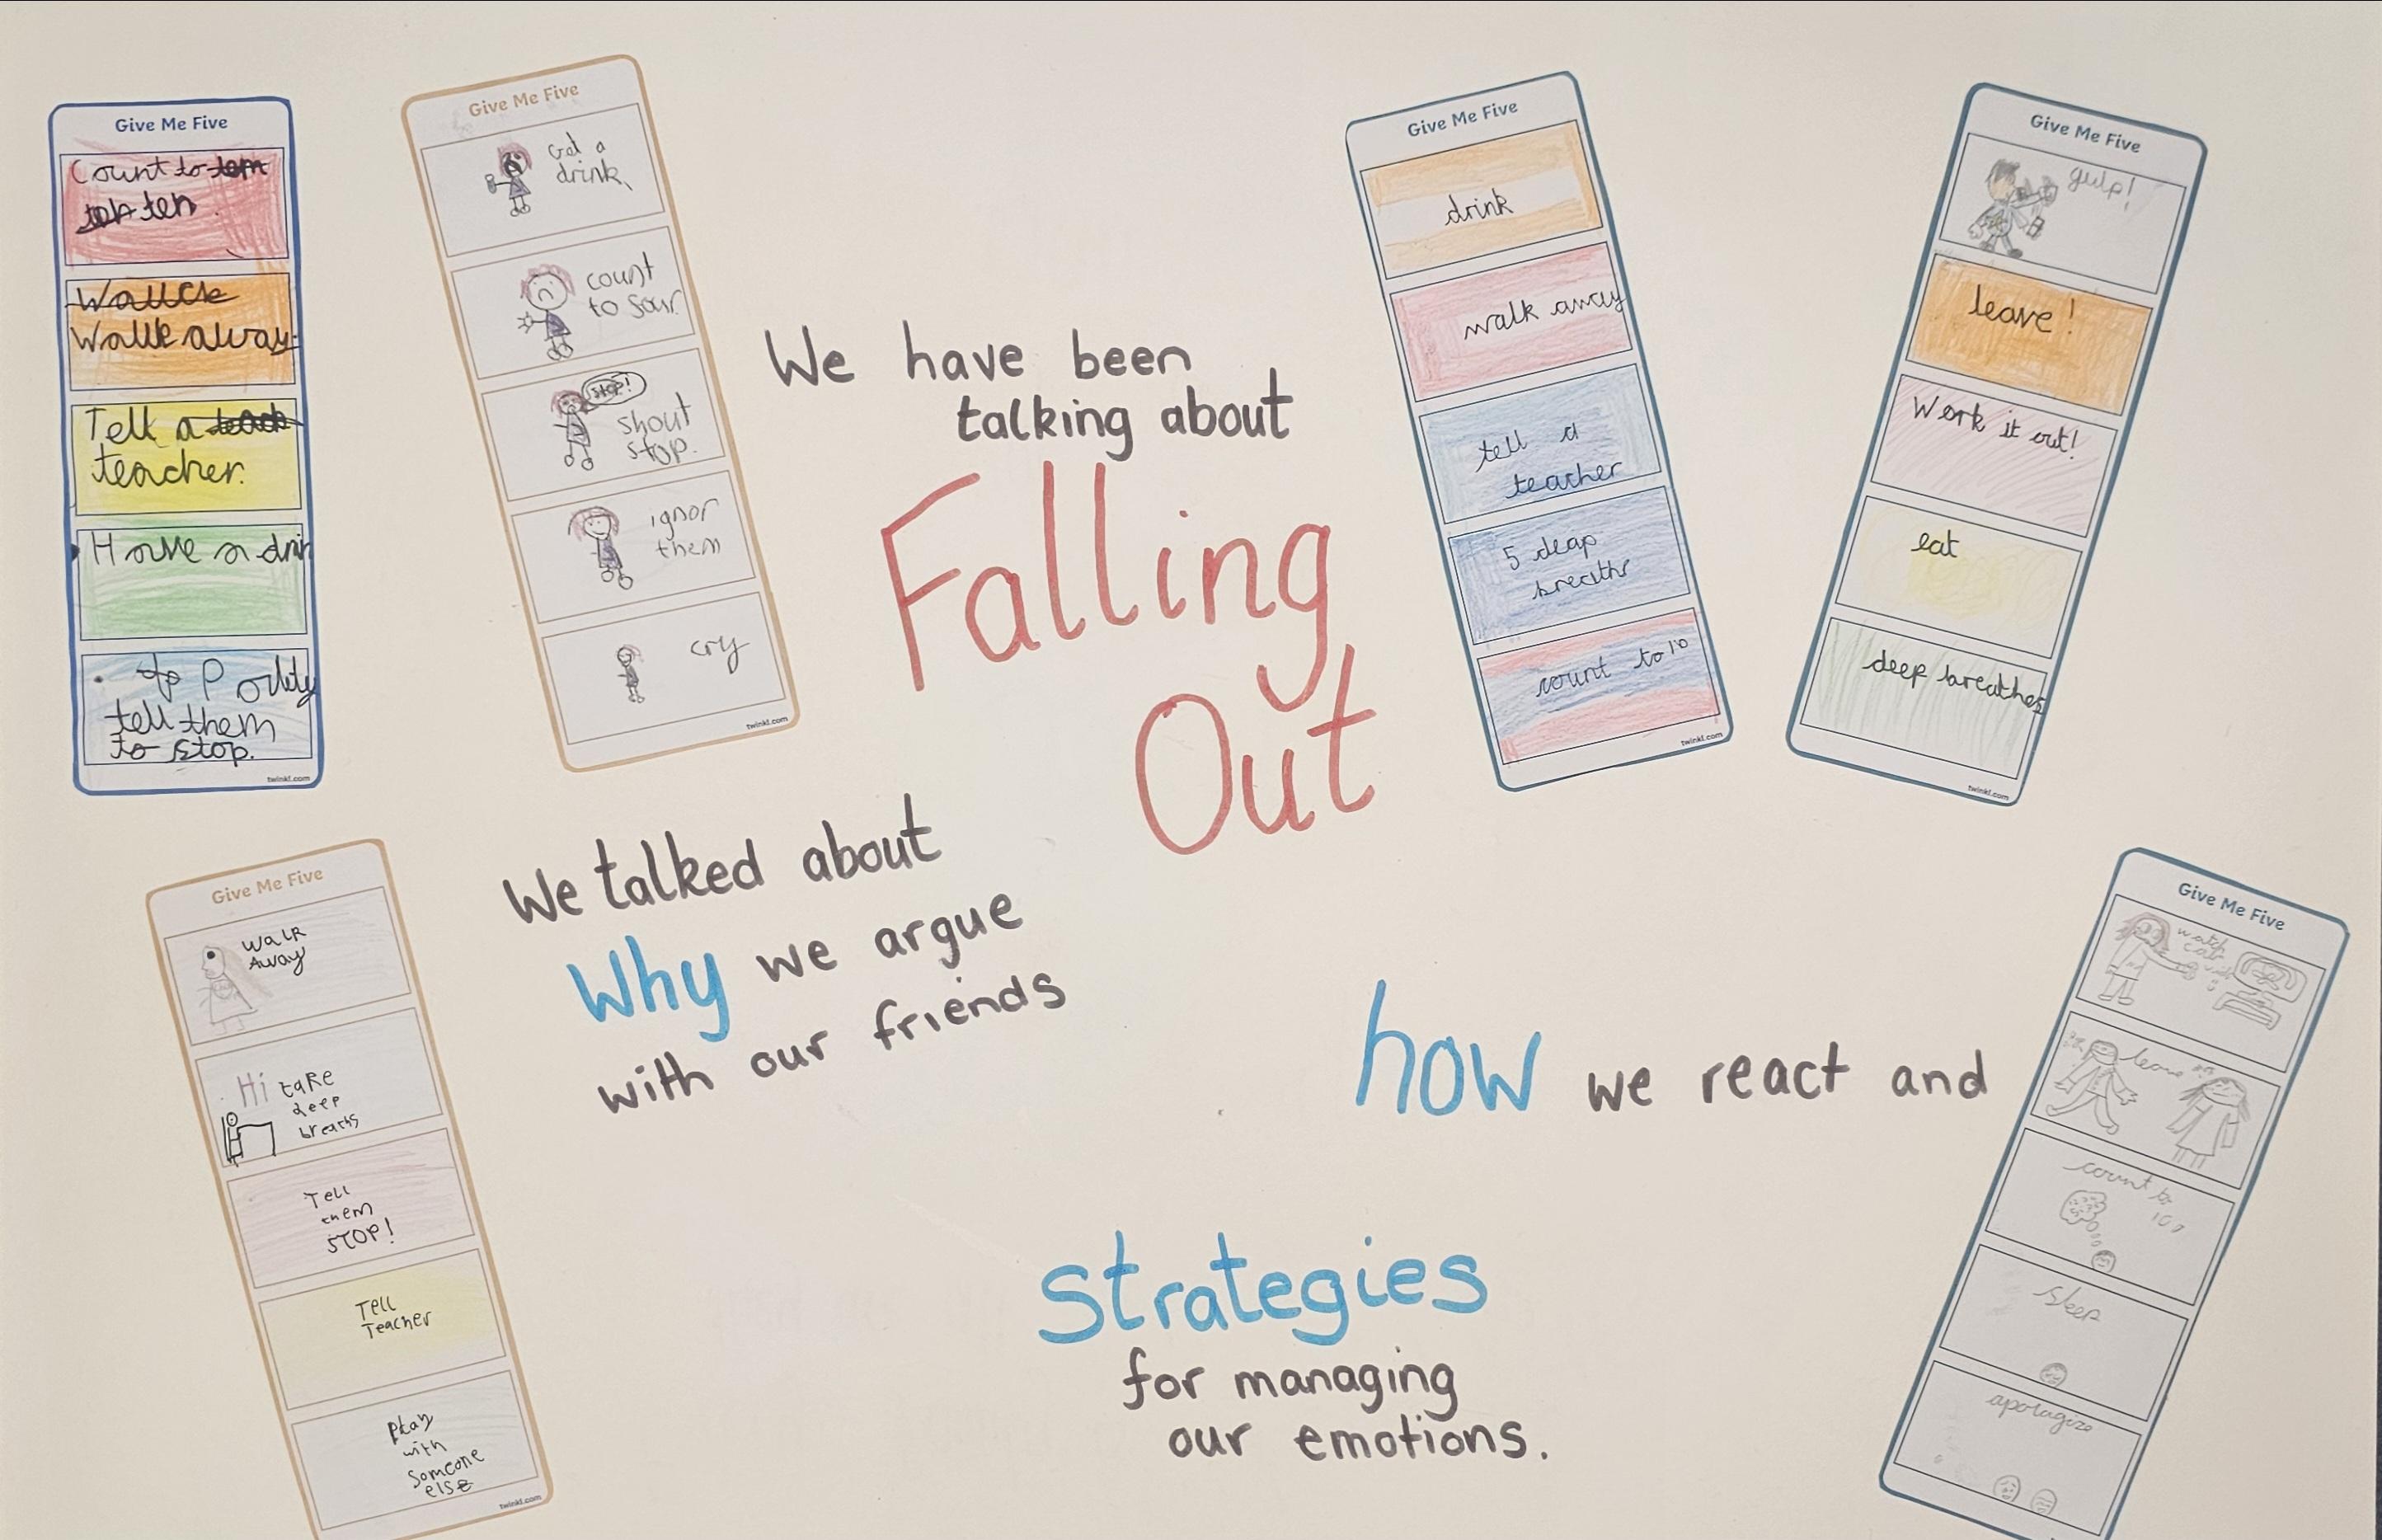 Give Me Five
Count to tem
ten ten
Wallck
Walk away.
Tell a teach
teacher.
Have a drin
to Politely
tell them
to stop.
twinkl.com
Give Me Five
Get a
drink
count
to four
stop!
shout
stop.
ignor
them
cry
twinkl.com
We have been
talking about
Falling
Out
Give Me Five
drink
walk away
tell a
teacher
5 deap
breaths
count to 10
twinkl.com
Give Me Five
gulp!
leave!
Work it out!
eat
deep breathes
twinkl.com
Give Me Five
WalK
Away
Hi take
deep
breaths
Tell
them
STOP!
Tell
Teacher
play
with
someone
else
twinkl.com
We talked about
Why we argue
with our friends
how we react and
Strategies
for managing
our emotions.
Give Me Five
watch
leave
count to
100
sleep
apologize